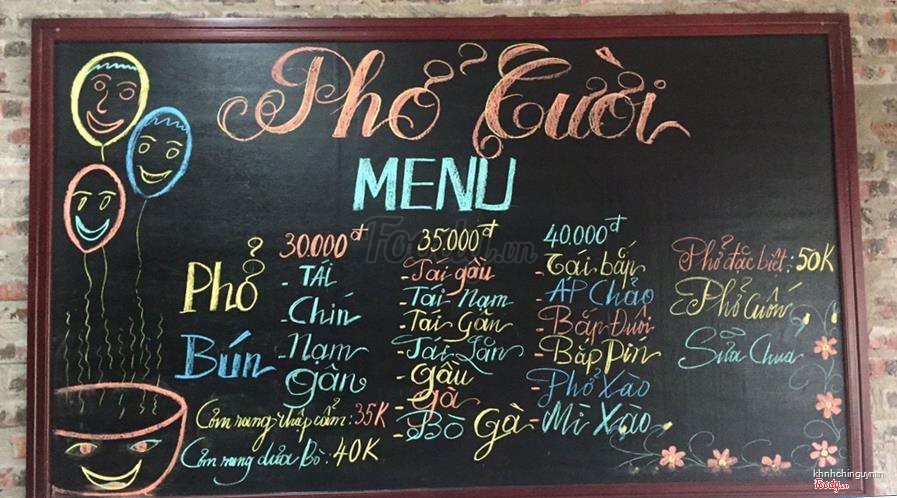 Phở Cười
MENU
Phở
Bún
30.000đ
- TÁI
Chín
- Nạm
Gân
35.000đ
- Tái gầu
- Tái - Nạm
- Tái Gân
- Tái Lăn
- Gầu
- Gà
- Bò Gà
40.000đ
- Tái bắp
- ÁP Chảo
- Bắp Đuôi
- Bắp Pín
- Phở Xào
- Mì Xào
Phở đặc biệt: 50K
Phở Cuốn
Sữa Chua
Cơm rang thập cẩm: 35K
Cơm rang dưa Bò: 40K
Foody.vn
khnhchinguynm
Foody.vn